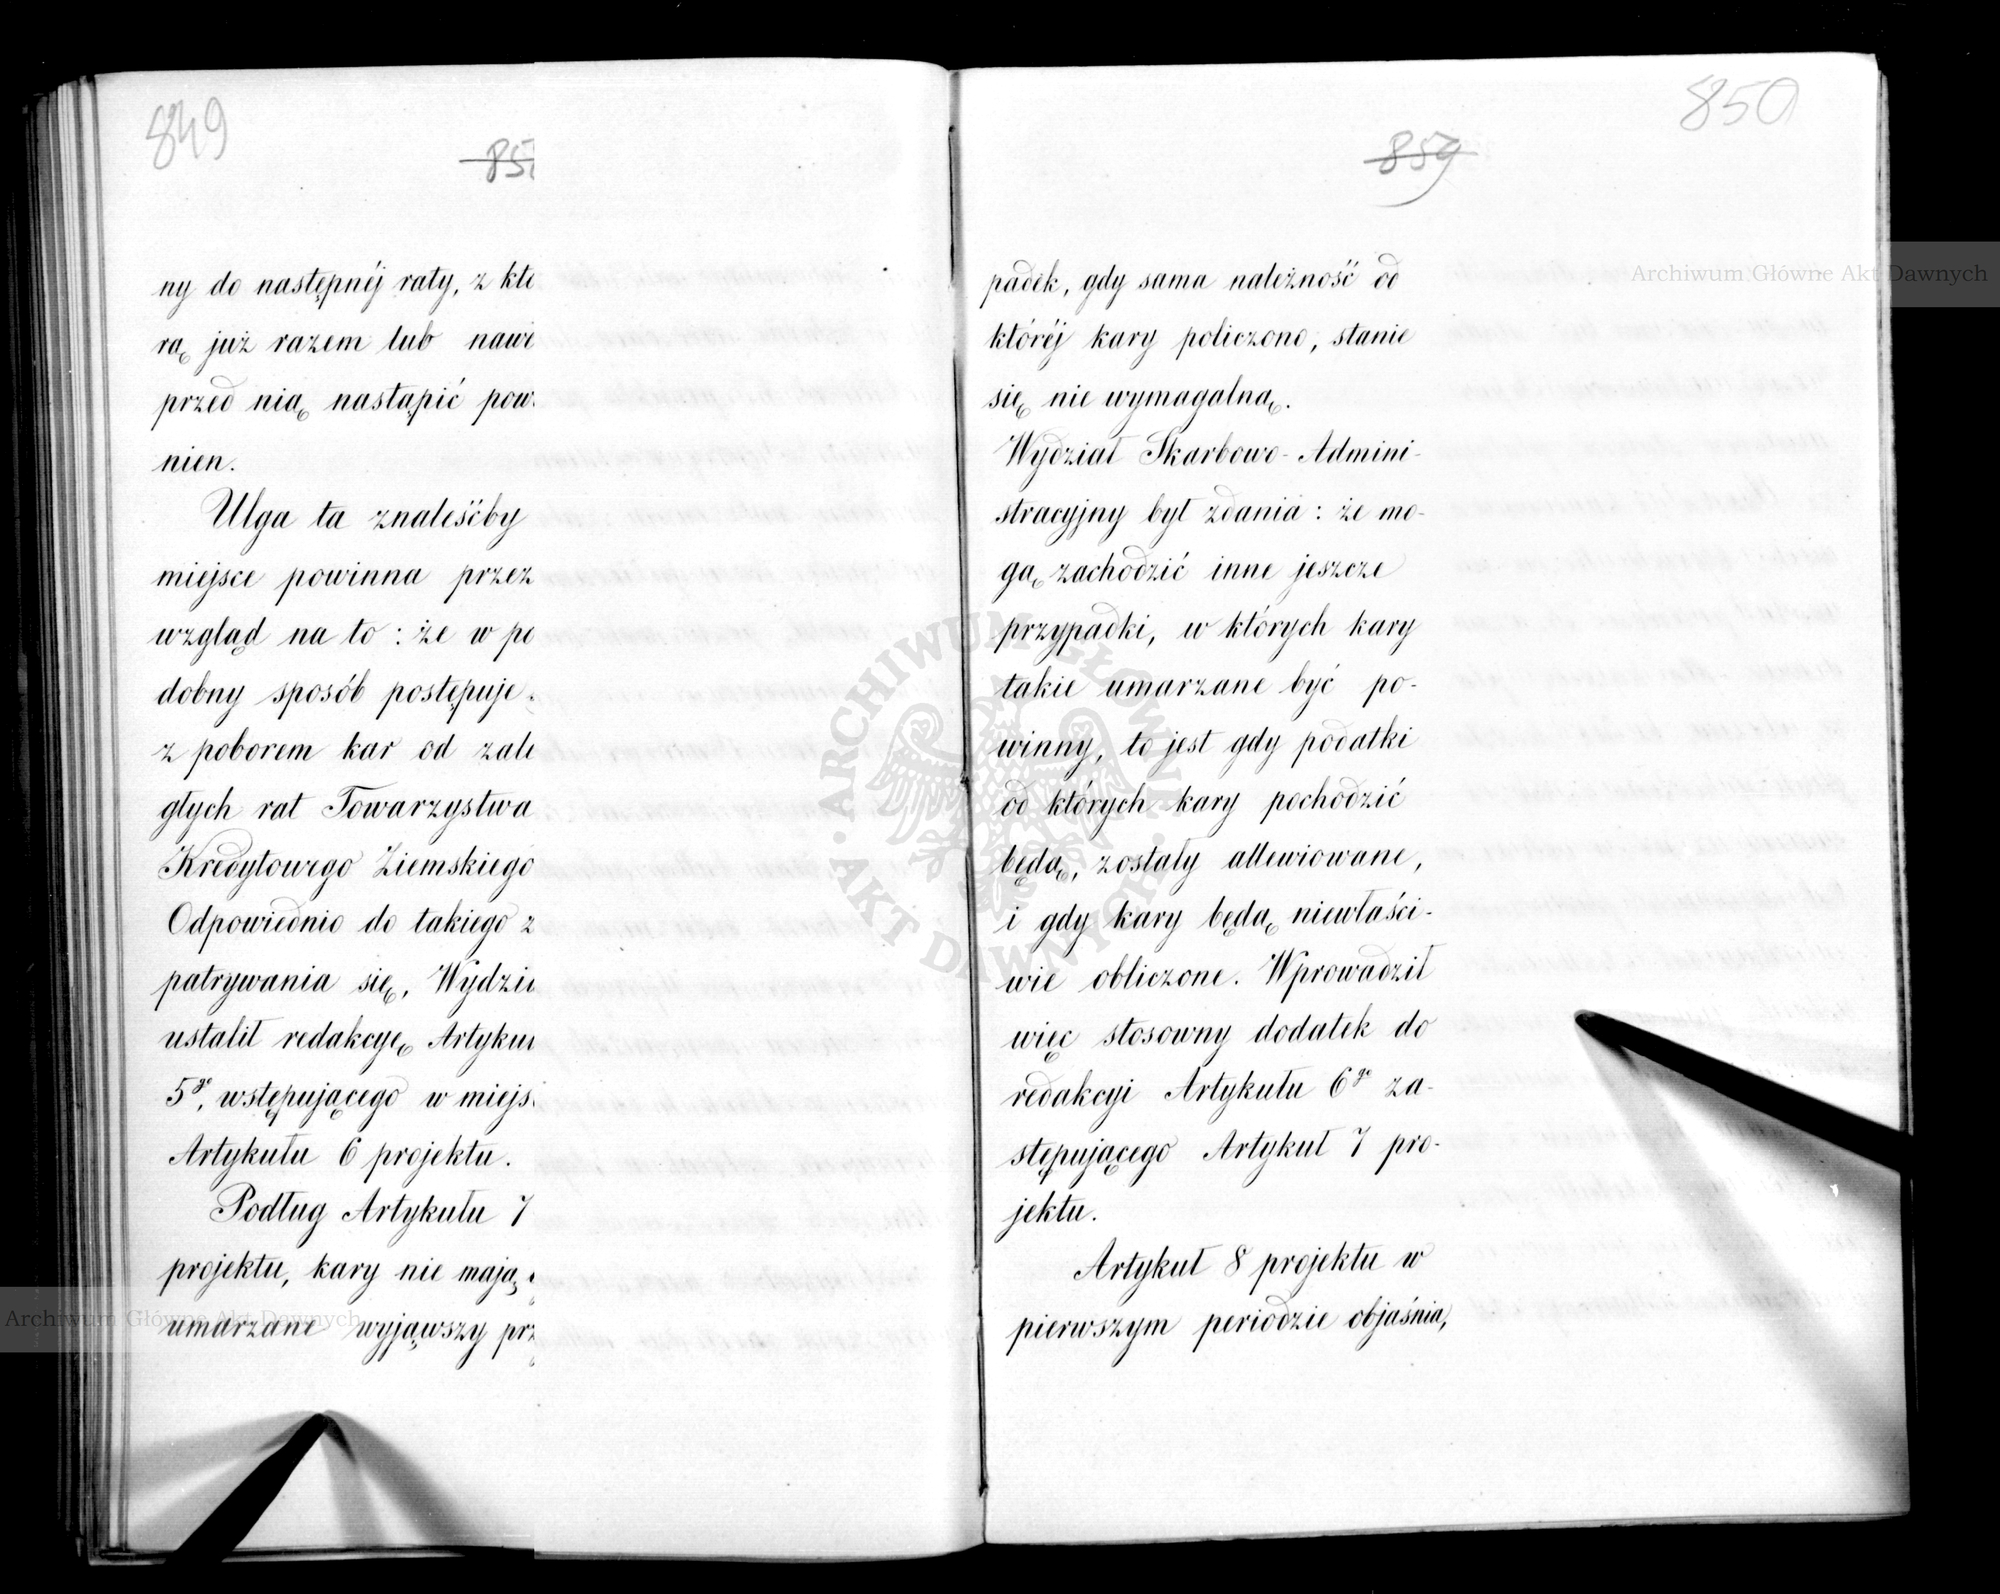 849
ny do następnéj raty, z
rą już razem lub
przed nią nastąpić
nien.
Ulga ta znaleśćby
miejsce powinna przez
wzgląd na to: że w
dobny sposób postępuje
z poborem kar od
głych rat Towarzystwa
Kredytowego Ziemskiego
Odpowiednio do takiego
patrywania się,
ustalił redakcyę
5go, wstępującego w
Artykułu 6 projektu.
Podług Artykułu 7
projektu, kary nie mają
umarzane wyjąwszy
850
859
padek, gdy sama należność od
któréj kary policzono, stanie
się nie wymagalną.
Wydział Skarbowo-Admini-
stracyjny był zdania: że mo-
gą zachodzić inne jeszcze
przypadki, w których kary
takie umarzane być po-
winny, to jest gdy podatki
od których kary pochodzić
będą, zostały allewiowane,
i gdy kary będą niewłaści-
wie obliczone. Wprowadził
więc stosowny dodatek do
redakcyi Artykułu 6go za-
stępującego Artykuł 7 pro-
jektu.
Artykuł 8 projektu w
pierwszym periodzie objaśnia,
Archiwum Główne Akt Dawnych
Archiwum Główne Akt Dawnych
ARCHIWUM GŁÓWNE AKT DAWNYCH